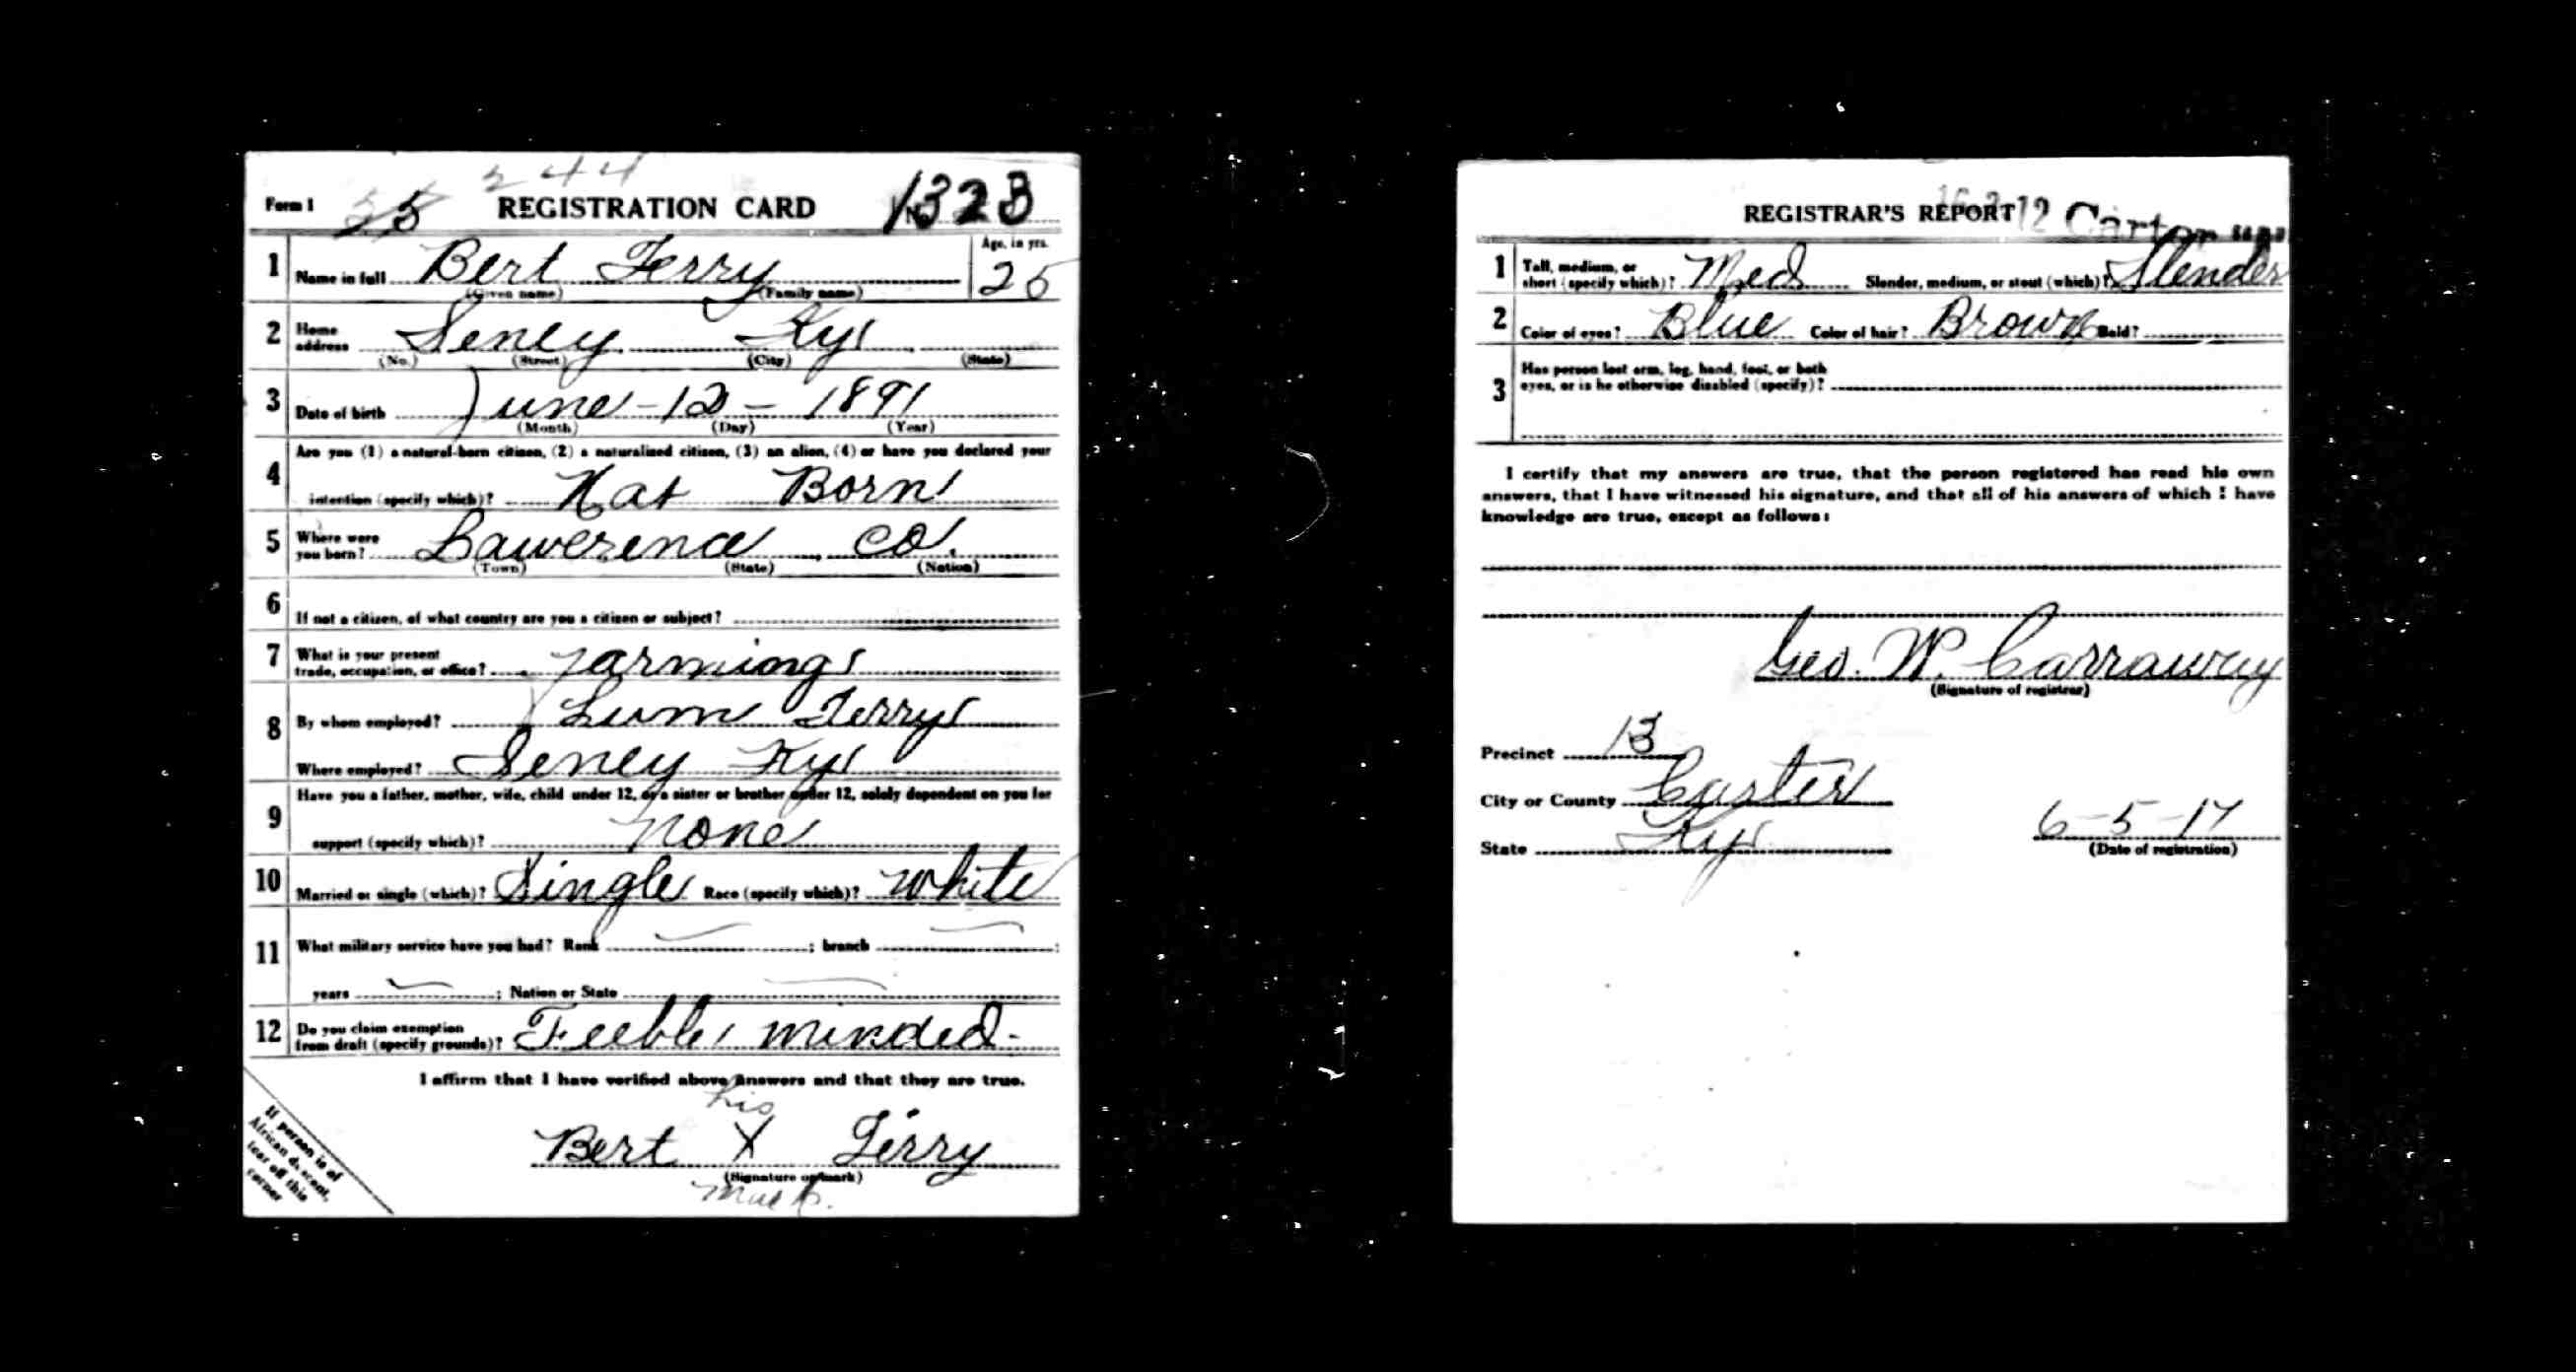 244
Form 1 REGISTRATION CARD No. 1323
1 Name in full Bert Terry Age, in yrs. 25
(Given name) (Family name)
2 Home address Seney Ky
(No.) (Street) (City) (State)
3 Date of birth June - 12 - 1891
(Month) (Day) (Year)
4 Are you (1) a natural-born citizen, (2) a naturalized citizen, (3) an alien, (4) or have you declared your
intention (specify which)? Nat Born
5 Where were you born? Lawerence co.
(Town) (State) (Nation)
6 If not a citizen, of what country are you a citizen or subject?
7 What is your present trade, occupation, or office? Farming
8 By whom employed? Lum Terry
Where employed? Seney Ky
9 Have you a father, mother, wife, child under 12, or a sister or brother under 12, solely dependent on you for
support (specify which)? None
10 Married or single (which)? Single Race (specify which)? White
11 What military service have you had? Rank — ; branch — ;
years — ; Nation or State —
12 Do you claim exemption from draft (specify grounds)? Feeble minded -
I affirm that I have verified above answers and that they are true.
his
Bert X Terry
(Signature or mark)
mark.
If person is of
African descent,
tear off this
corner
REGISTRAR'S REPORT 12 Carter
1 Tall, medium, or short (specify which)? Med Slender, medium, or stout (which)? Slender
2 Color of eyes? Blue Color of hair? Brown Bald?
3 Has person lost arm, leg, hand, foot, or both
eyes, or is he otherwise disabled (specify)?
I certify that my answers are true, that the person registered has read his own
answers, that I have witnessed his signature, and that all of his answers of which I have
knowledge are true, except as follows:
Geo. W. Carraway
(Signature of registrar)
Precinct 13
City or County Carter
State Ky
6-5-17
(Date of registration)